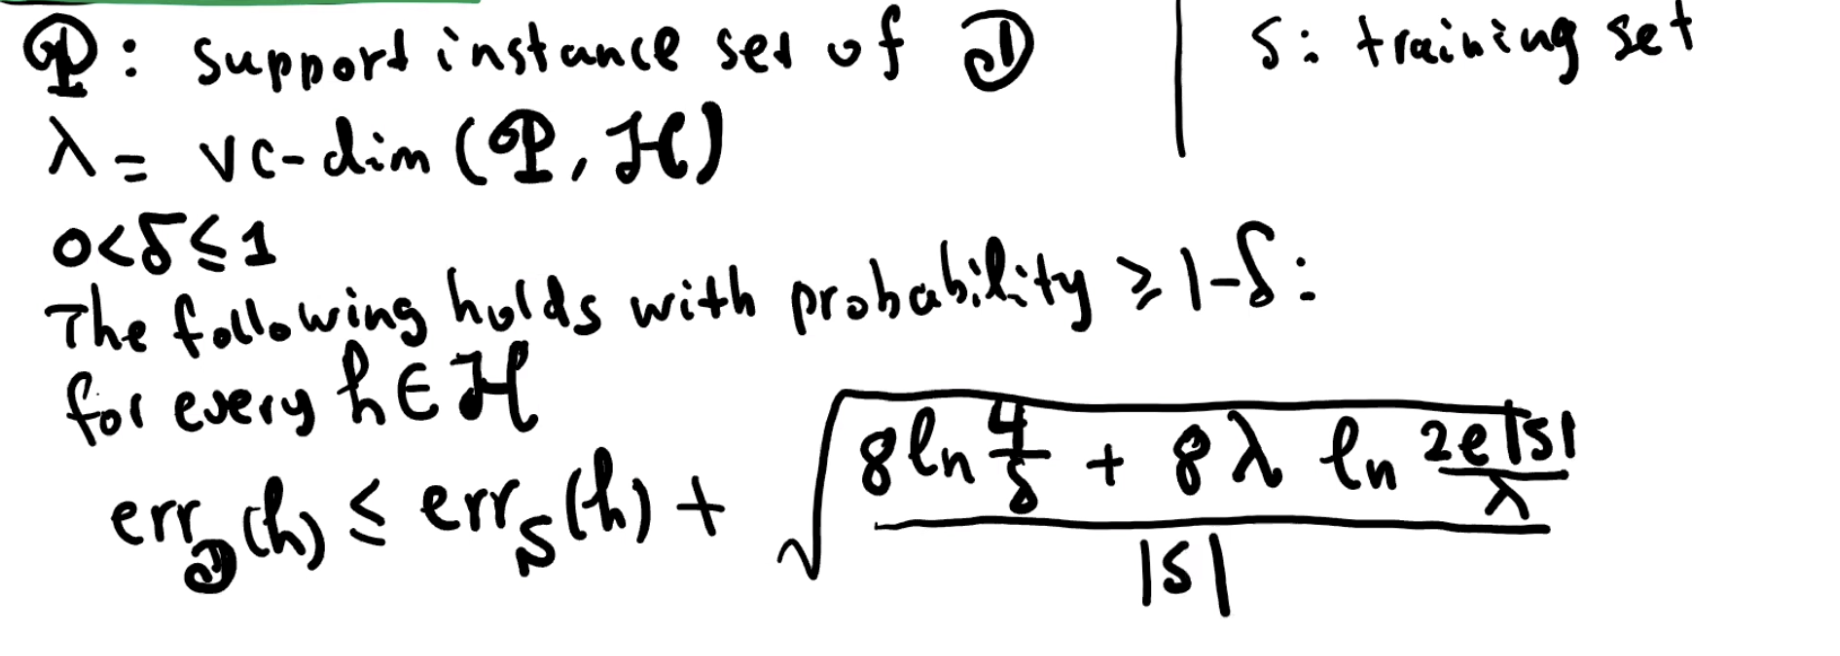 𝒫: support instance set of 𝒟 | S: training set
λ = vc-dim(𝒫, ℋ)
0<δ≤1
The following holds with probability ≥ 1-δ:
for every h∈ℋ
err_𝒟(h) ≤ err_S(h) + √((8 ln 4/δ + 8λ ln 2e|S|/λ)/|S|)